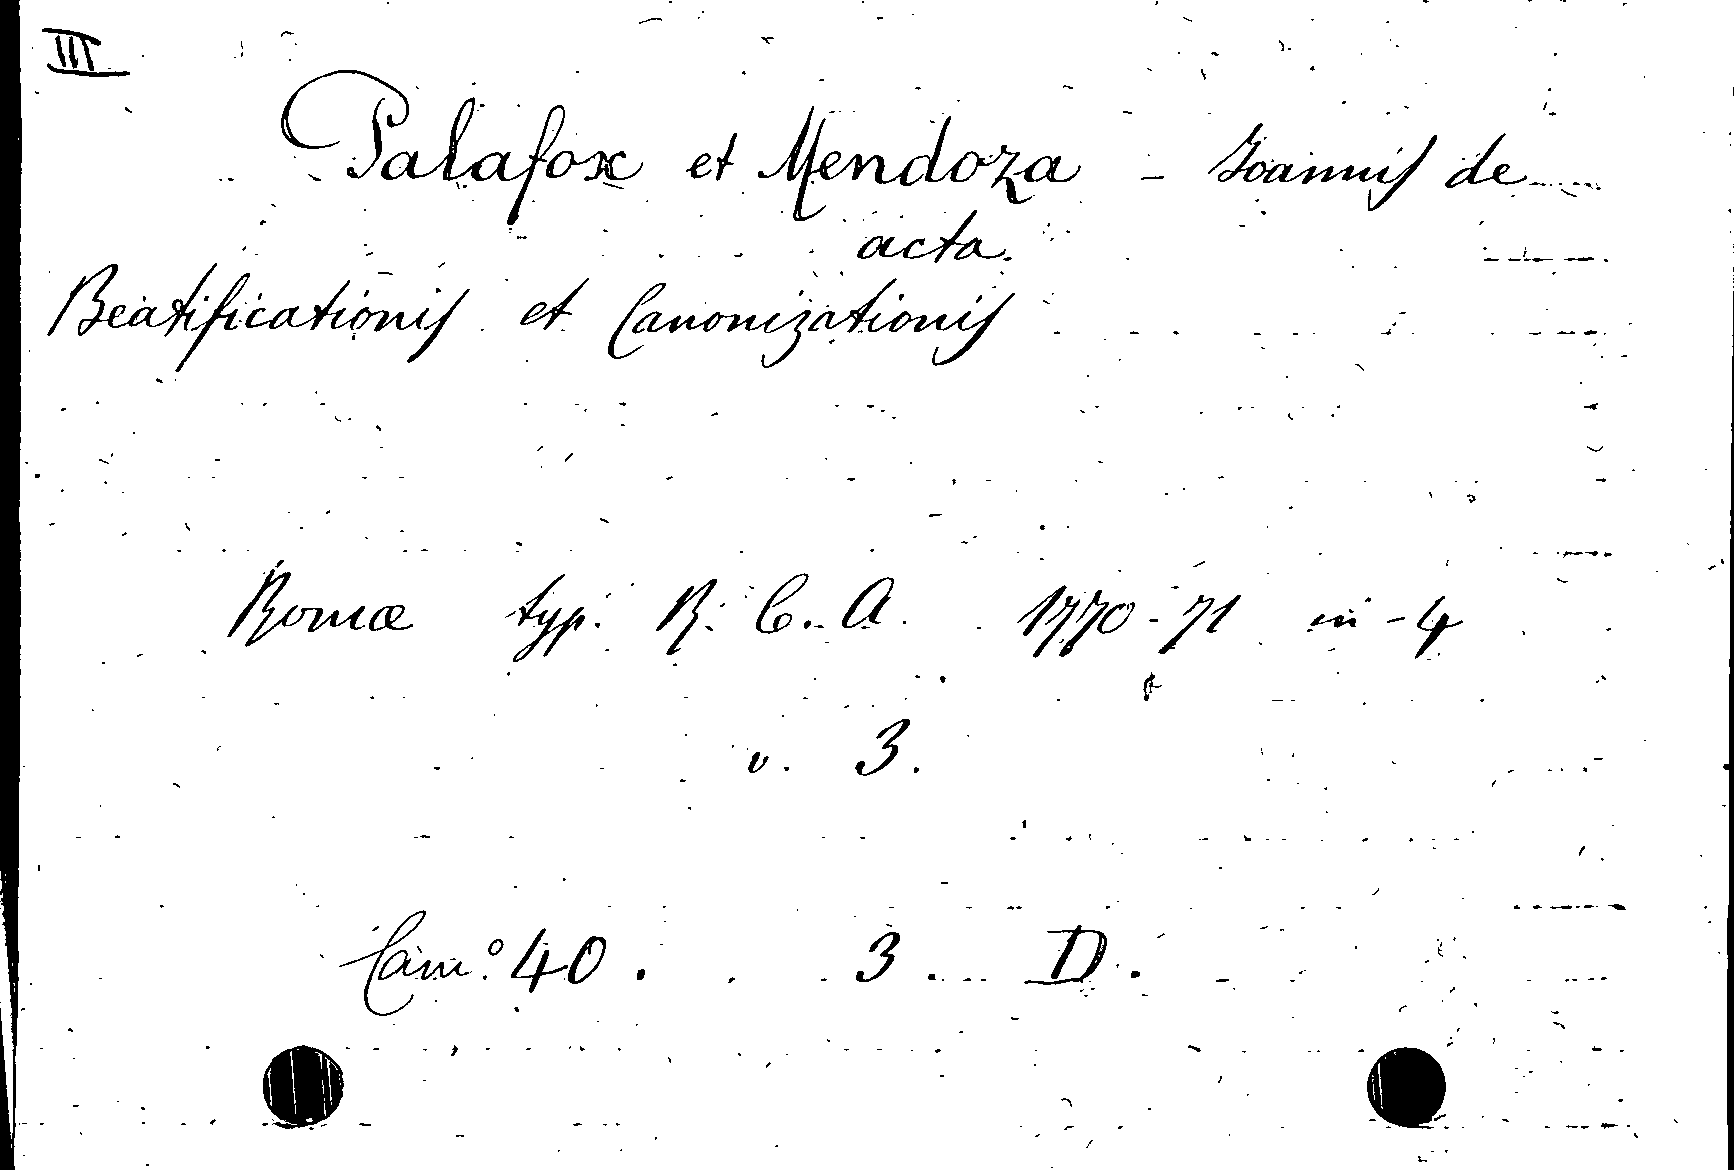 III
Palafox et Mendoza - Joannis de
acta
Beatificationis et Canonizationis
Romæ typ. R. C. A. 1770-71 in-4
v. 3.
Cam.° 40. 3. D.